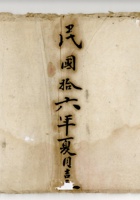 民國拾六年夏月吉